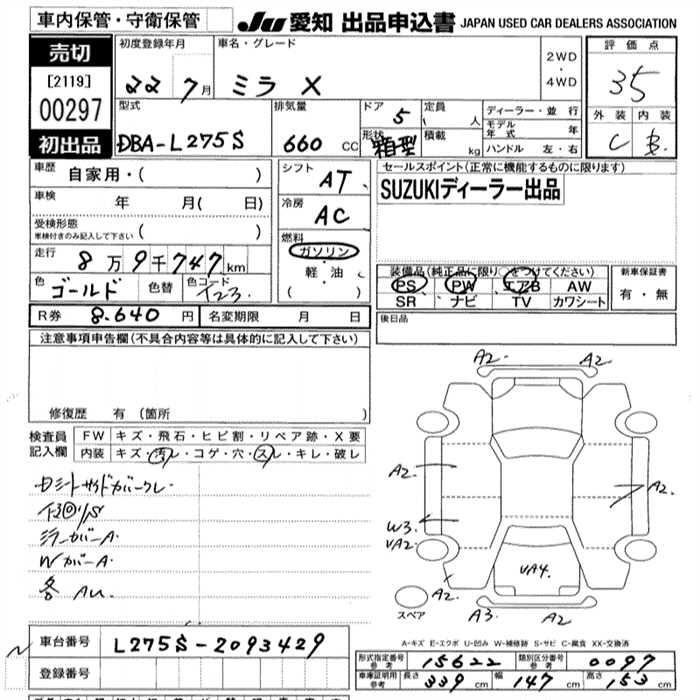 車内保管・守衛保管
JU 愛知 出品申込書 JAPAN USED CAR DEALERS ASSOCIATION
売切
[2119]
00297
初出品
初度登録年月
22 7月
車名・グレード
ミラ X
2WD
・
4WD
評価点
35
外装 内装
C B
型式
DBA-L275S
排気量
660 CC
ドア 5
形状 箱型
定員 人
積載 kg
ディーラー・並行
モデル年式 年
ハンドル 左・右
車歴 自家用・( )
車検 年 月( 日)
受検形態
車検付きのみ記入して下さい ( )
走行 8万9千747km
色 ゴールド 色替 色コード T23
R券 8.640 円 名変期限 月 日
シフト AT
冷房 AC
燃料
ガソリン
・
軽・油
( )
セールスポイント(正常に機能するものに限ります)
SUZUKIディーラー出品
装備品(純正品に限り○をつけてください)
PS PW エアB AW
SR ナビ TV カワシート
新車保証書
有・無
後日品
注意事項申告欄(不具合内容等は具体的に記入して下さい)
修復歴 有(箇所 )
検査員記入欄
FW キズ・飛石・ヒビ割・リペア跡・X要
内装 キズ・汚レ・コゲ・穴・スレ・キレ・破レ
ミラーカバーA
WカバーA
各 AU
A2 A2
A2 A2
W3
UA2
UA4
A2 A3 A2
スペア
A-キズ E-エクボ U-凹み W-補修跡 S-サビ C-腐食 XX-交換済
車台番号 L275S-2093429
登録番号
形式指定番号 参考 15622 類別区分番号 参考 0097
車庫証明用 参考 長さ 339cm 幅 147cm 高さ 153cm